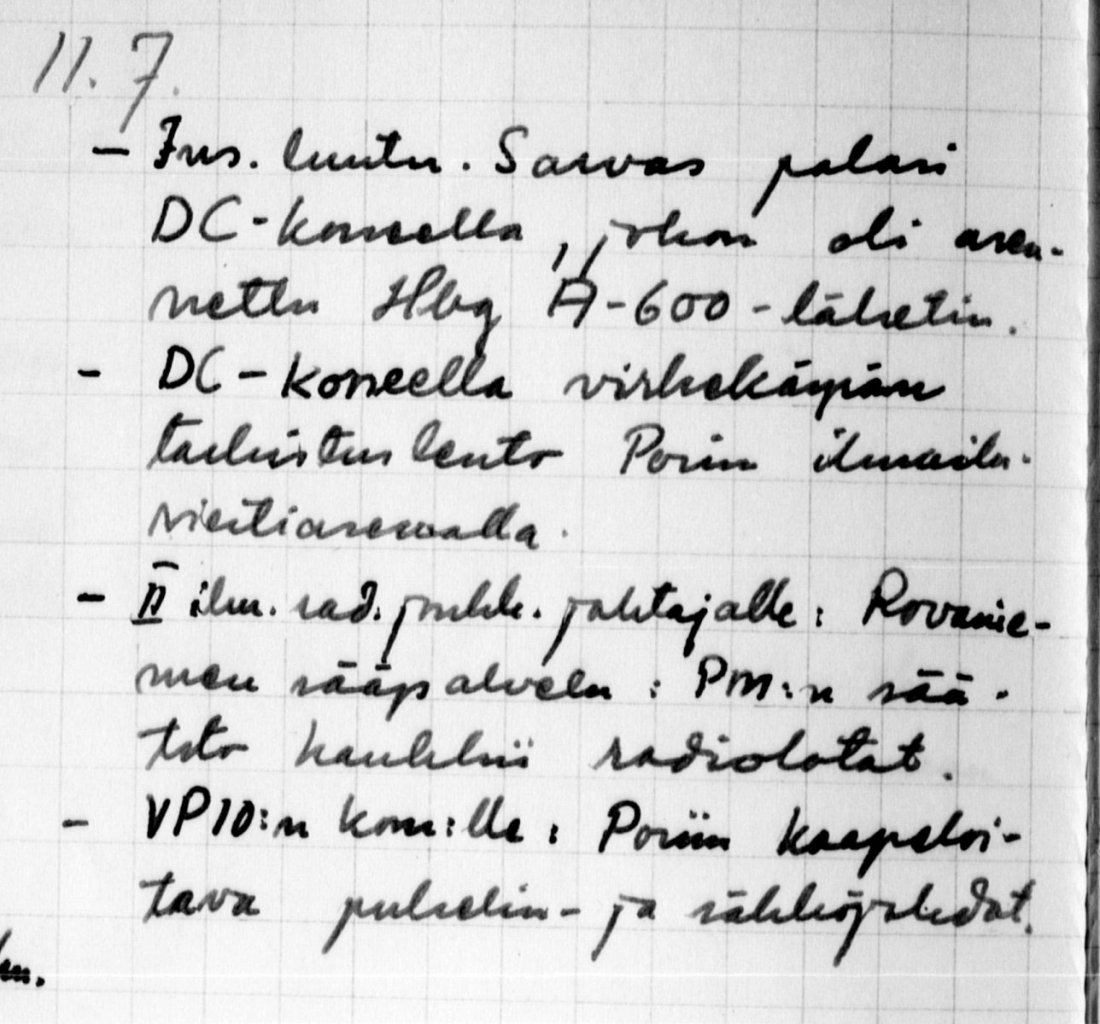 11.7.
- Ins. luutn. Sarvas palasi
DC-koneella, johon oli asen-
nettu Hbg A-600-lähetin.
- DC-koneella virhekäyrän
tarkistuslento Porin ilmailu-
viestiasemalla.
- II ilm. rad. joukk. johtajalle: Rovanie-
men sääpalvelu: PM:n sää-
tsto hankkii radiolotat.
- VP10:n kom:lle: Poriin kaapeloi-
tava puhelin- ja sähköjohdot.